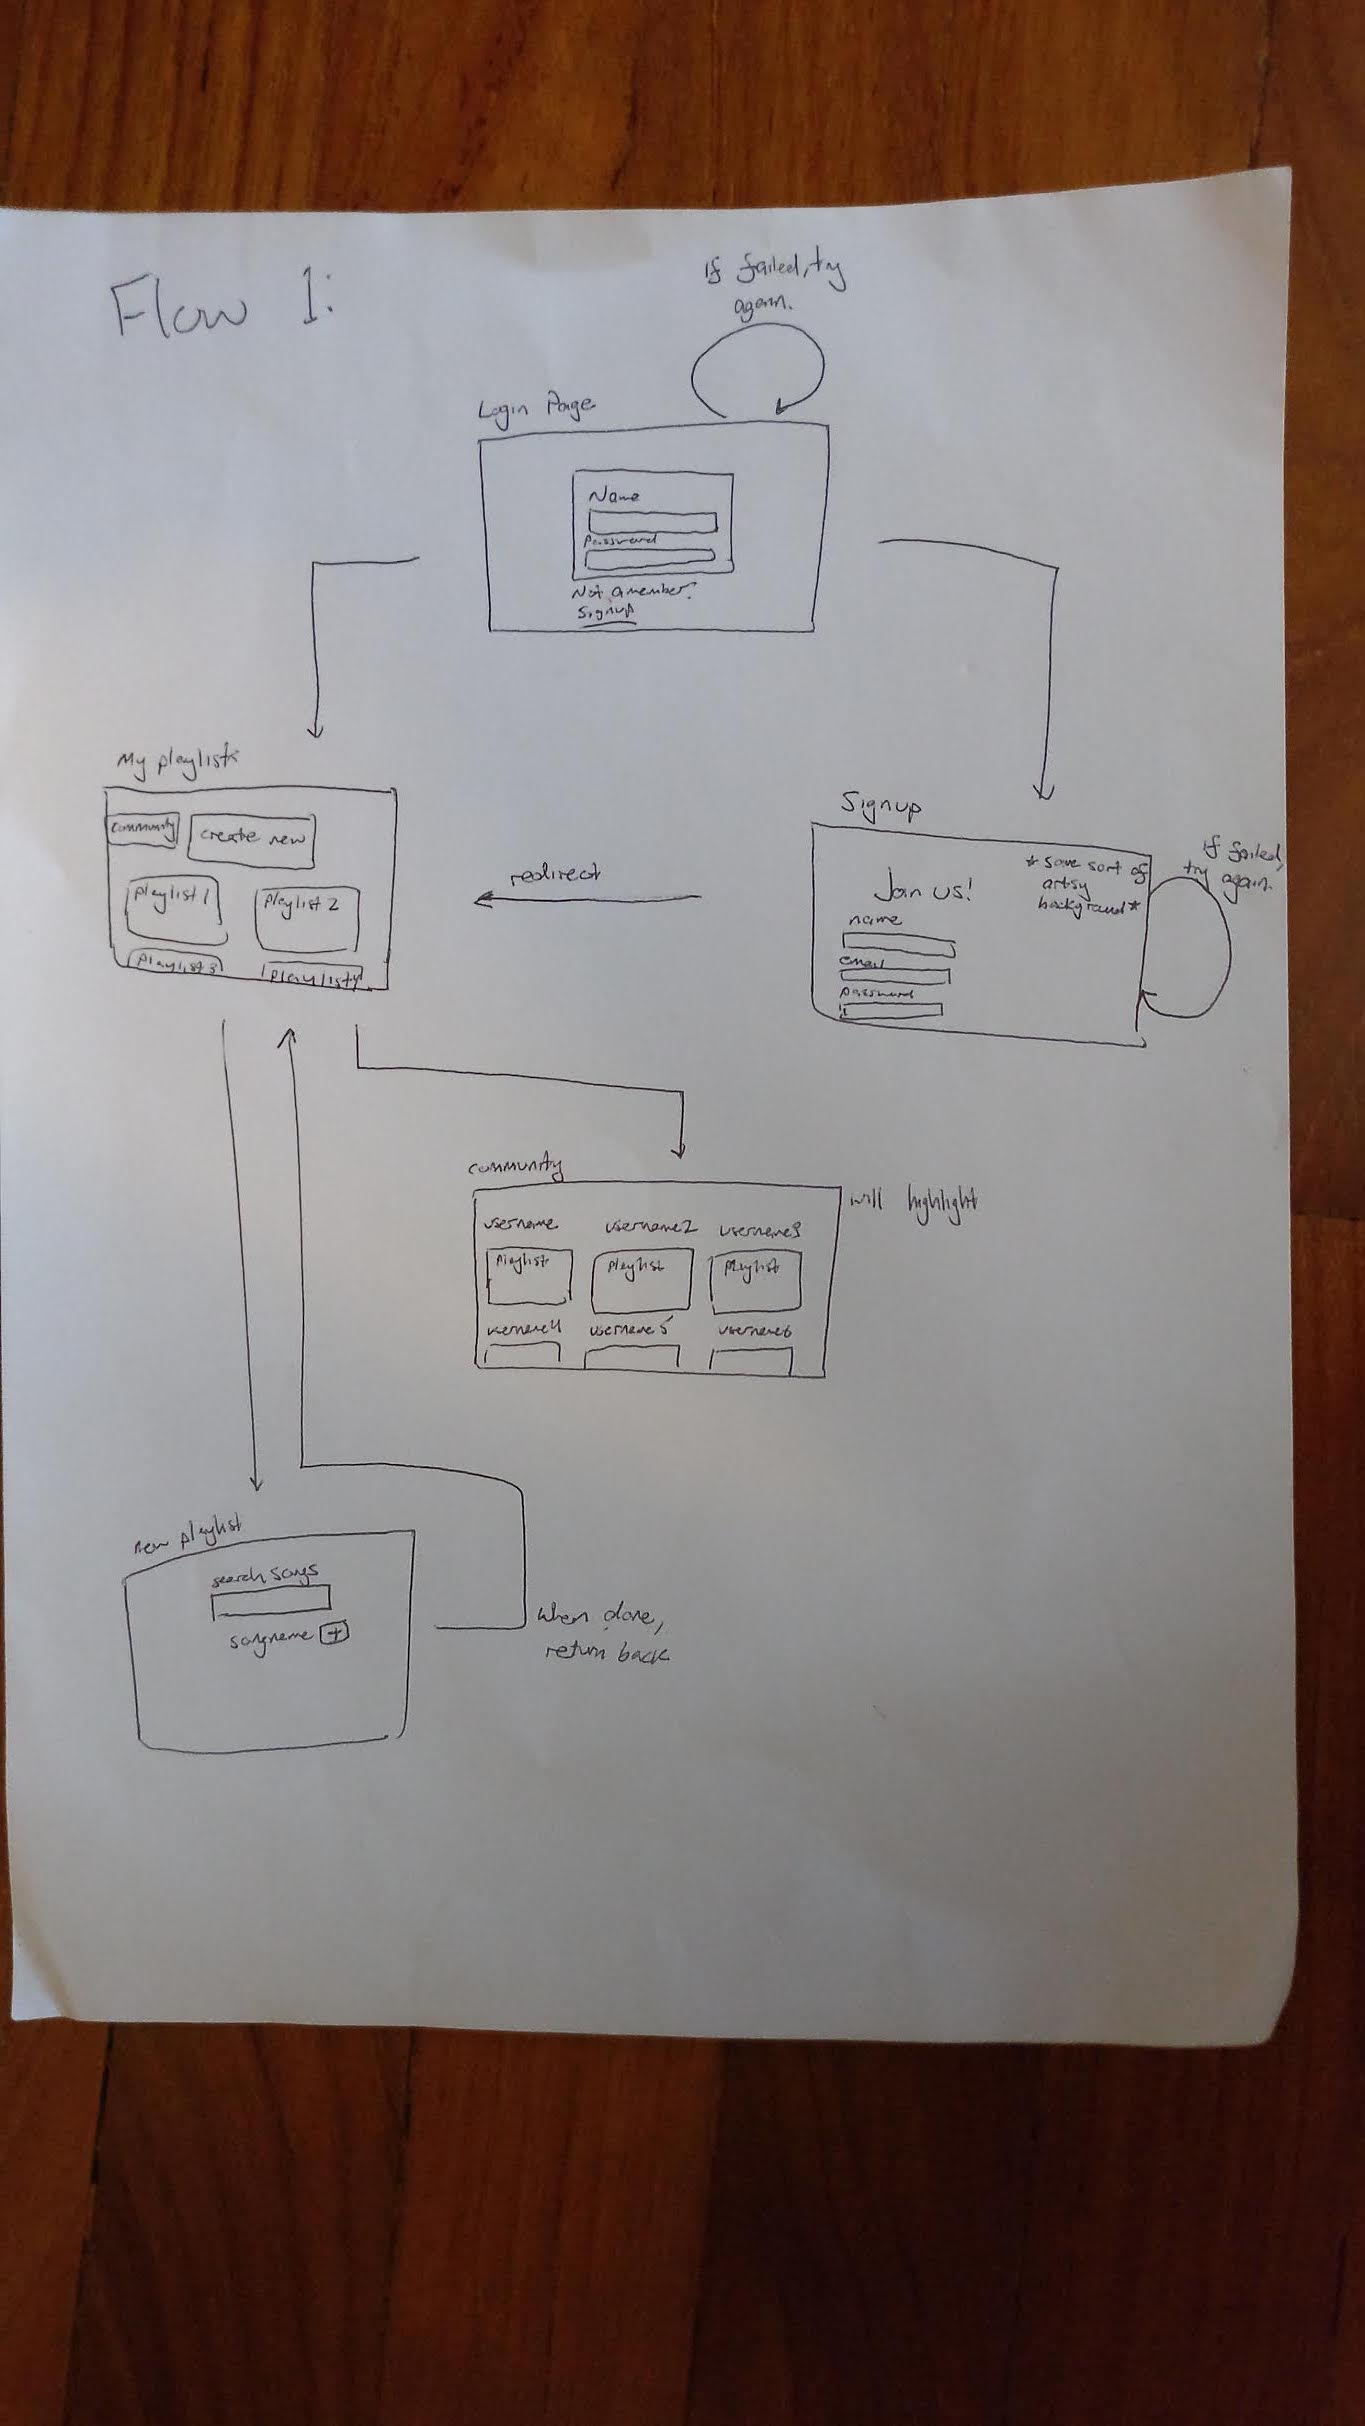 Flow 1:
If failed, try
again.
Login Page
Name
Password
Not a member?
Signup
My playlists
community
create new
playlist 1
playlist 2
playlist 3
playlist 4
redirect
Signup
Join us!
name
email
password
of
artsy
background*
If failed,
try again.
community
will highlight
username
username2
username3
playlist
playlist
playlist
username4
username5
username6
new playlist
search songs
songname +
When done,
return back